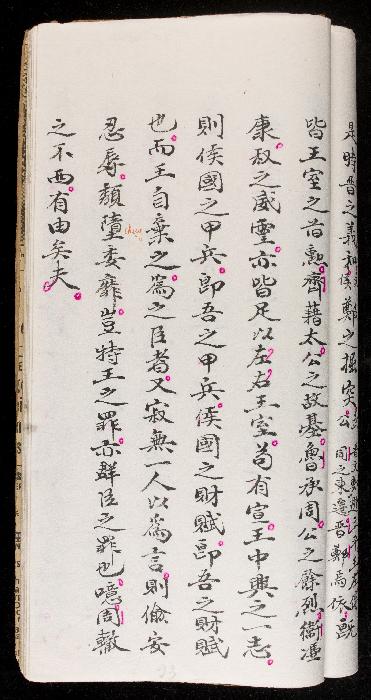 是時晉之義和鄭之掘突
周之東遷晉鄭焉依
皆王室之首勳齊藉太公之故基魯承周公之餘烈衛憑
康叔之威靈亦皆足以左右王室苟有宣王中興之一志
則侯國之甲兵即吾之甲兵侯國之財賦即吾之財賦
也而王自棄之為之臣者又寂無一人以為言則偷安
忍辱頹墮委靡豈特王之罪亦群臣之罪也噫周轍
之不西有由矣夫